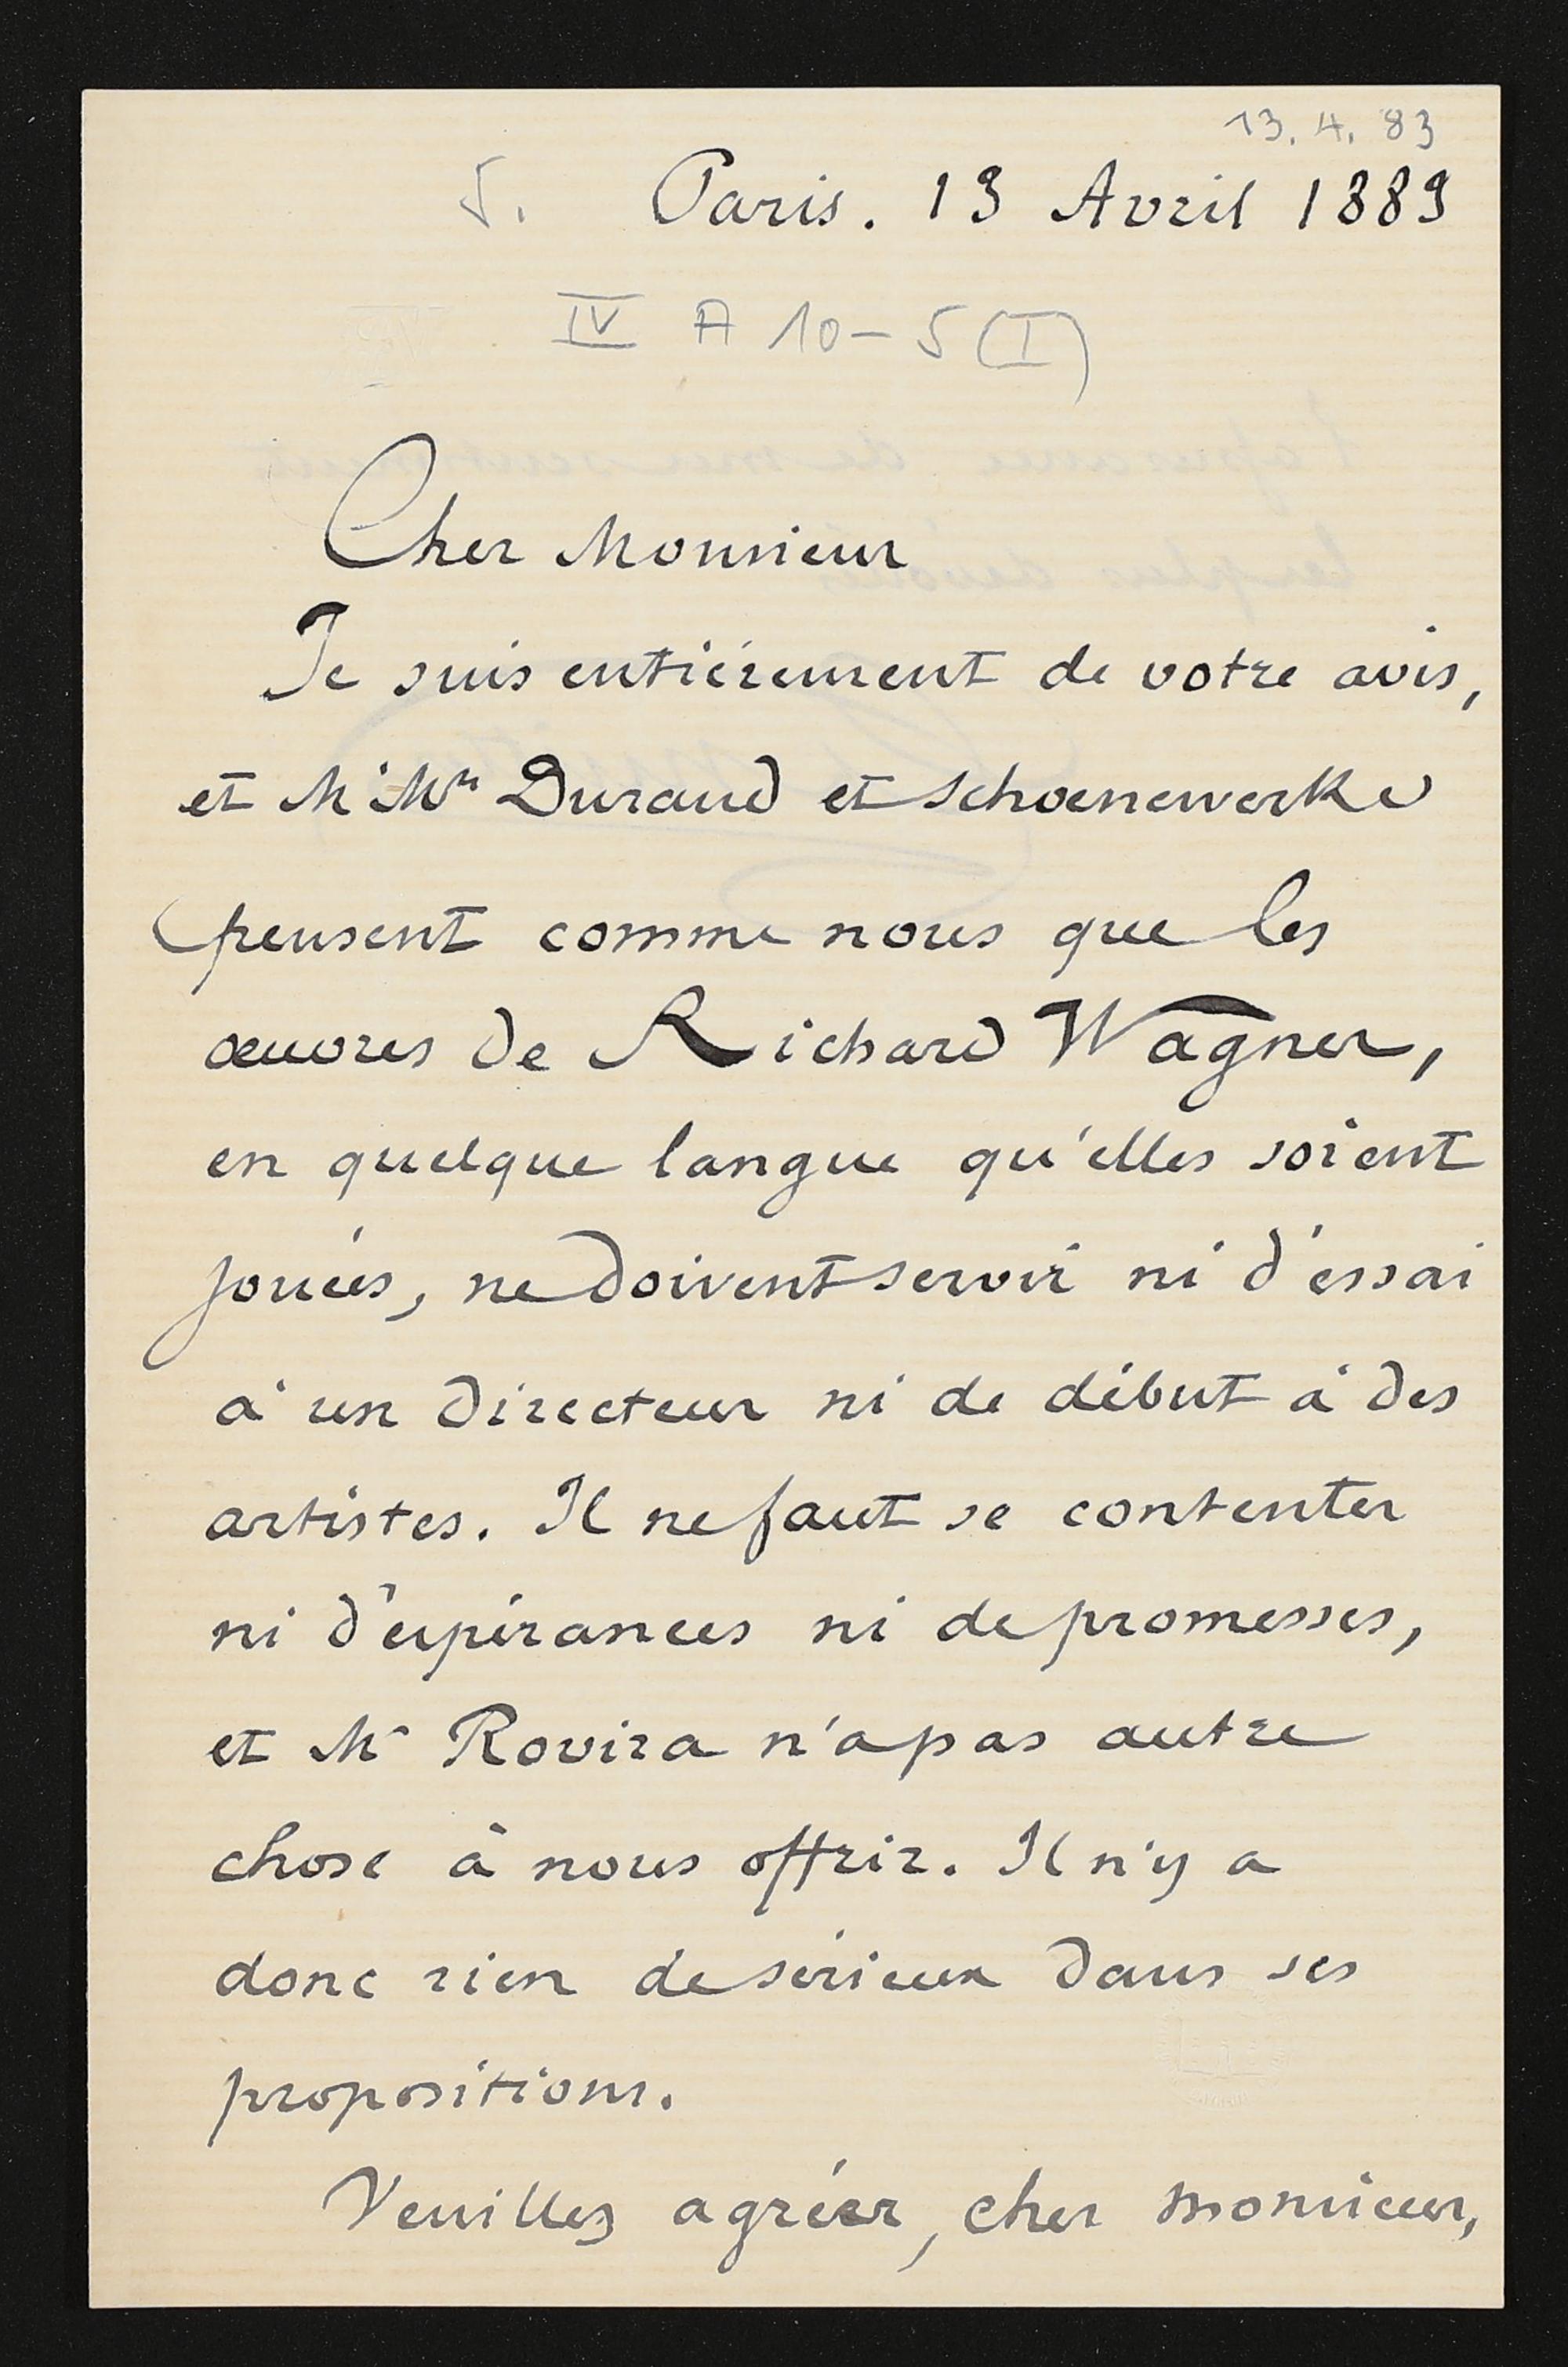 13. 4. 83
5. Paris. 13 Avril 1883
IV A 10-5 (I)
Cher Monsieur
Je suis entièrement de votre avis,
et M.Mrs Durand et Schoenewerke
pensent comme nous que les
œuvres de Richard Wagner,
en quelque langue qu'elles soient
jouées, ne doivent servir ni d'essai
à un directeur ni de début à des
artistes. Il ne faut se contenter
ni d'espérances ni de promesses,
et Mr Rovira n'a pas autre
chose à nous offrir. Il n'y a
donc rien de sérieux dans ses
propositions.
Veuillez agréer, cher monsieur,